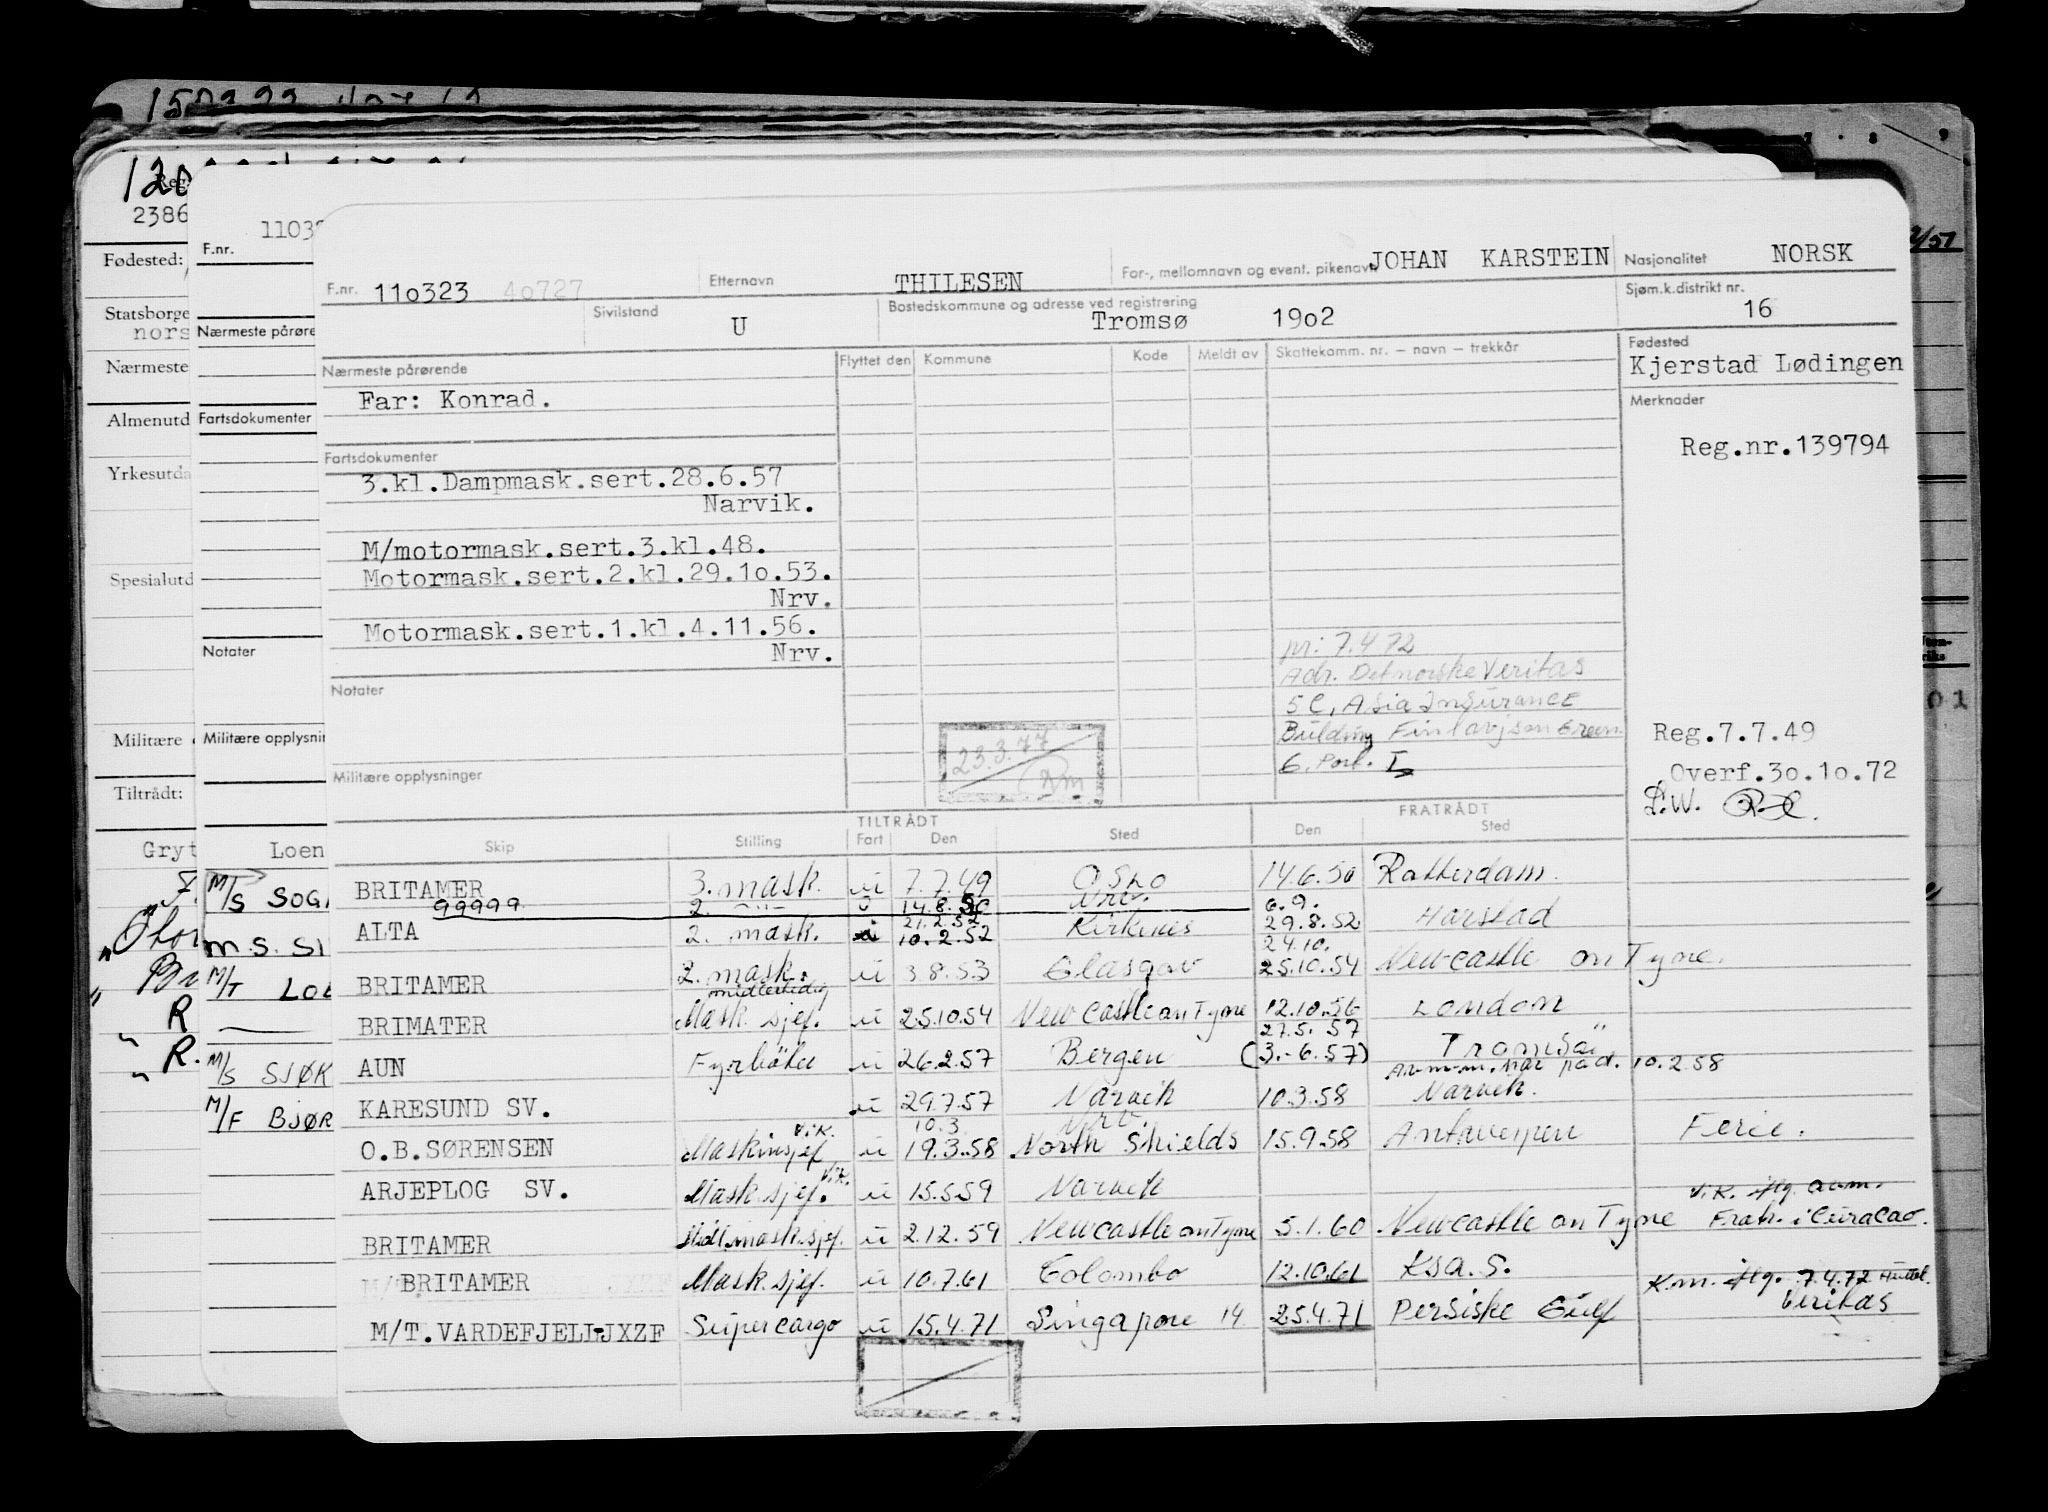 F.nr. 110323 40727 Etternavn THILESEN For-, mellomnavn og event. pikenavn JOHAN KARSTEIN Nasjonalitet NORSK
Sivilstand U Bostedskommune og adresse ved registrering Tromsø 1902 Sjøm.k.distrikt nr. 16
Nærmeste pårørende Flyttet den Kommune Kode Meldt av Skattekomm. nr. – navn – trekkår Fødested
Kjerstad Lødingen
Far: Konrad.
Merknader
Reg.nr.139794
Fartsdokumenter
3.kl.Dampmask.sert.28.6.57
Narvik.
M/motormask.sert.3.kl.48.
Motormask.sert.2.kl.29.10.53.
Nrv.
Motormask.sert.1.kl.4.11.56.
Nrv.
7.4.72
Adr. Det norske Veritas
5C, Asia Insurance
Building Finlayson Green
Notater
23.3.77
Reg.7.7.49
Overf.30.10.72
L.W.
Militære opplysninger
TILTRÅDT FRATRÅDT
Skip Stilling Fart Den Sted Den Sted
BRITAMER 3. mask. u 7.7.49 Oslo 14.6.50 Rotterdam.
99999 2. —"— 14.8.50 Nrv. 6.9.
21.2.52
ALTA 2. mask. 10.2.52 Kirkenes 29.8.52 Harstad
24.10.
BRITAMER 2. mask. u 3.8.53 Glasgow 25.10.54 Newcastle on Tyne.
midlertidig
BRIMATER Mask.sjef. u 25.10.54 Newcastle on Tyne 12.10.56 London
27.5.57
AUN Fyrbøter u 26.2.57 Bergen (3.-6.57) Tromsø
10.2.58
KARESUND SV. u 29.7.57 Narvik 10.3.58 Narvik.
10.3. Nrv.
O.B.SØRENSEN Maskinsjef v.k. u 19.3.58 North Shields 15.9.58 Antwerpen Ferie.
ARJEPLOG SV. Mask.sjef. v.k. u 15.5.59 Narvik
v.k. iflg. anm.
BRITAMER Midl.mask.sjef. u 2.12.59 Newcastle on Tyne 5.1.60 Newcastle on Tyne Fratr. i Curacao.
BRITAMER Mask.sjef. u 10.7.61 Colombo 12.10.61 Ksa. S.
K.m. iflg. 7.4.72
Veritas
M/T.VARDEFJELL JXZF Supercargo u 15.4.71 Singapore 14 25.4.71 Persiske Gulf
Fødested:
Statsborge
nors
Nærmeste
Almenutd
Yrkesutda
Spesialutd
Militære
Tiltrådt:
Gryt
2386
F.nr.
Nærmeste pårøre
Fartsdokumenter
Notater
Militære opplysnin
Loen
M/S SOG
M.S. SI
M/T
M/S SJØK
M/F BJØR